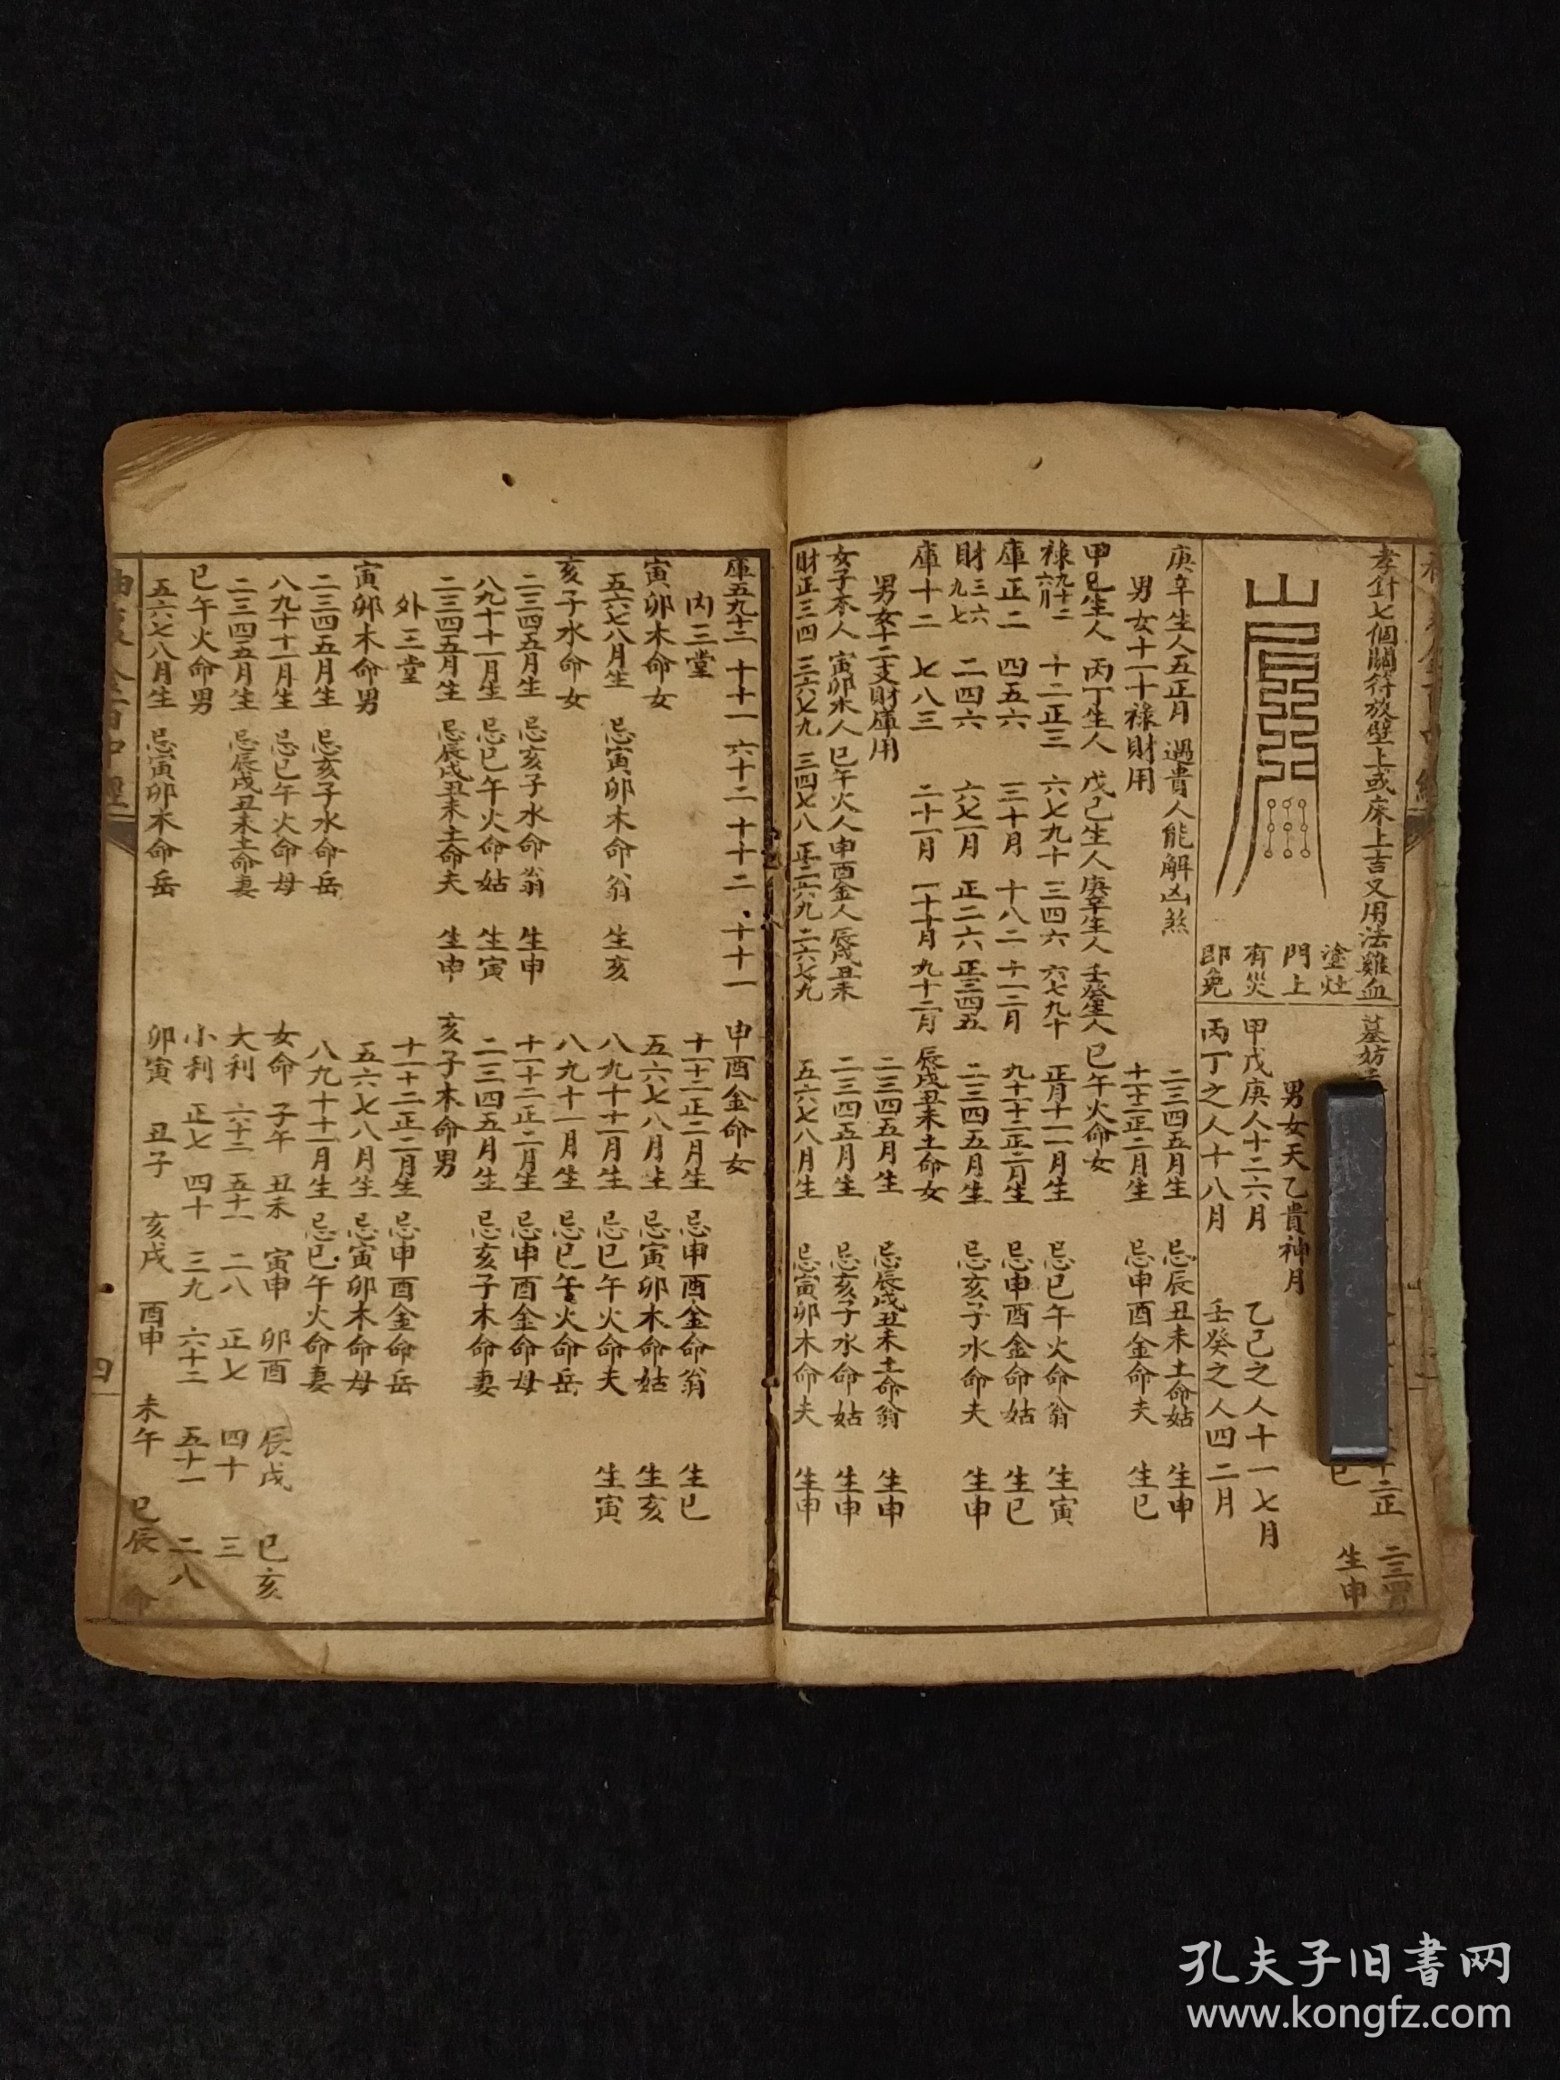 孝針七個關符放壁上或床上吉又用法雞血
塗灶
門上
有災
即免
男女天乙貴神月
甲戊庚人十二六月
乙己之人十一七月
丙丁之人十八月
壬癸之人四二月
生申
庚辛生人五正月 遇貴人能解凶煞
二三四五月生 忌辰丑未土命姑 生申
男女十一十祿財用
十十二正二月生 忌申酉金命夫 生巳
甲乙生人 丙丁生人 戊己生人 庚辛生人 壬癸生人 巳午火命女
祿 十二正三 六七九十 三四六 六七九十
正月十十一月生 忌巳午火命翁 生寅
庫正二 四五六 三十月 十八二 十一二月
九十十二正二月生 忌申酉金命姑 生巳
財 二四六 六七一月 正二六 正三四五
二三四五月生 忌亥子水命夫 生申
庫十二 七八三 二十一月 一十十月 九十二月 辰戌丑未土命女
男女十二支財庫用
二三四五月生 忌辰戌丑未土命翁 生申
女子水人 寅卯木人 巳午火人 申酉金人 辰戌丑未
二三四五月生 忌亥子水命姑 生申
財正三四 三六七九 三四七八 正二六九 二六七九
五六七八月生 忌寅卯木命夫 生申
庫五九十二 十十一 六十二 十十二 十十一 申酉金命女
內三堂
十十二正二月生 忌申酉金命翁 生巳
寅卯木命女
五六七八月生 忌寅卯木命姑 生亥
五六七八月生 忌寅卯木命翁 生亥
八九十十一月生 忌巳午火命夫 生寅
亥子水命女
八九十十一月生 忌巳午火命岳
二三四五月生 忌亥子水命翁 生申
十十二正二月生 忌申酉金命母
八九十十一月生 忌巳午火命姑 生寅
二三四五月生 忌亥子木命妻
二三四五月生 忌辰戌丑未土命夫 生申
亥子木命男
外三堂
十十二正二月生 忌申酉金命岳
寅卯木命男
五六七八月生 忌寅卯木命母
二三四五月生 忌亥子水命岳
八九十十一月生 忌巳午火命妻
八九十十一月生 忌巳午火命母
女命 子午 丑未 寅申 卯酉 辰戌 巳亥
二三四五月生 忌辰戌丑未土命妻
大利 六十二 五十一 二八 正七 四十 三
巳午火命男
小利 正七 四十 三九 六十二 五十一 二八
五六七八月生 忌寅卯木命岳
卯寅 丑子 亥戌 酉申 未午 巳辰 命
四
孔夫子旧书网
www.kongfz.com